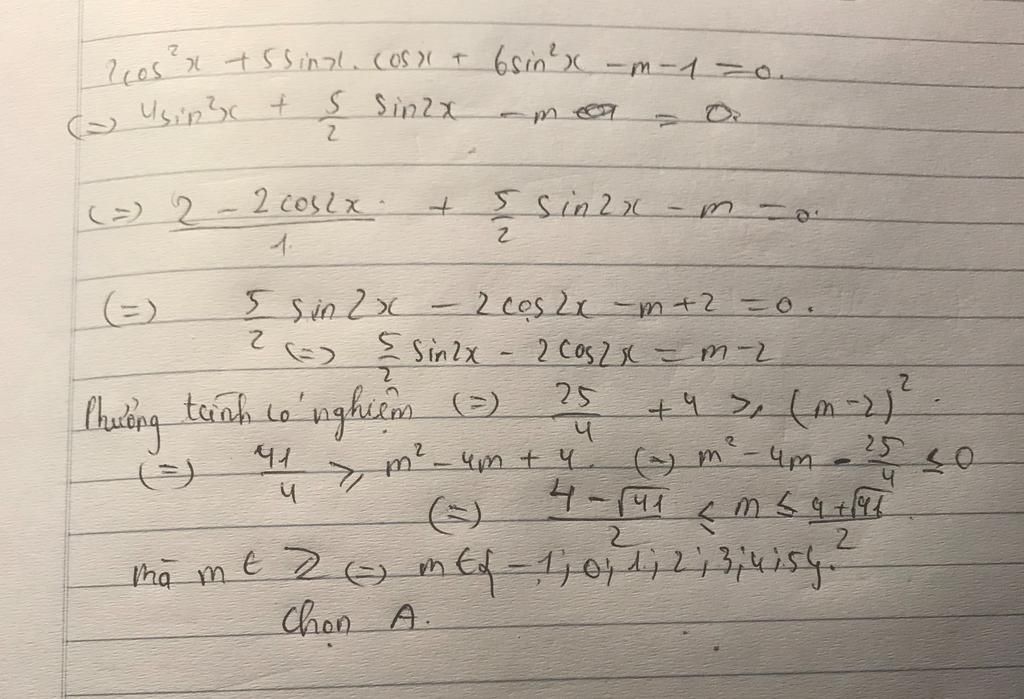 2cos²x + 5sinx.cosx + 6sin²x - m - 1 = 0.
(=) 4sin²x + 5/2 sin2x - m = 0.
(=) (2 - 2cos2x)/1 + 5/2 sin2x - m = 0.
(=) 5/2 sin2x - 2cos2x - m + 2 = 0.
(=) 5/2 sin2x - 2cos2x = m - 2
Phương trình có nghiệm (=) 25/4 + 4 ≥ (m-2)².
(=) 41/4 ≥ m² - 4m + 4. (=) m² - 4m - 25/4 ≤ 0
(=) (4 - √41)/2 ≤ m ≤ (4 + √41)/2.
mà m ∈ Z (=) m ∈ {-1; 0; 1; 2; 3; 4; 5}.
Chọn A.